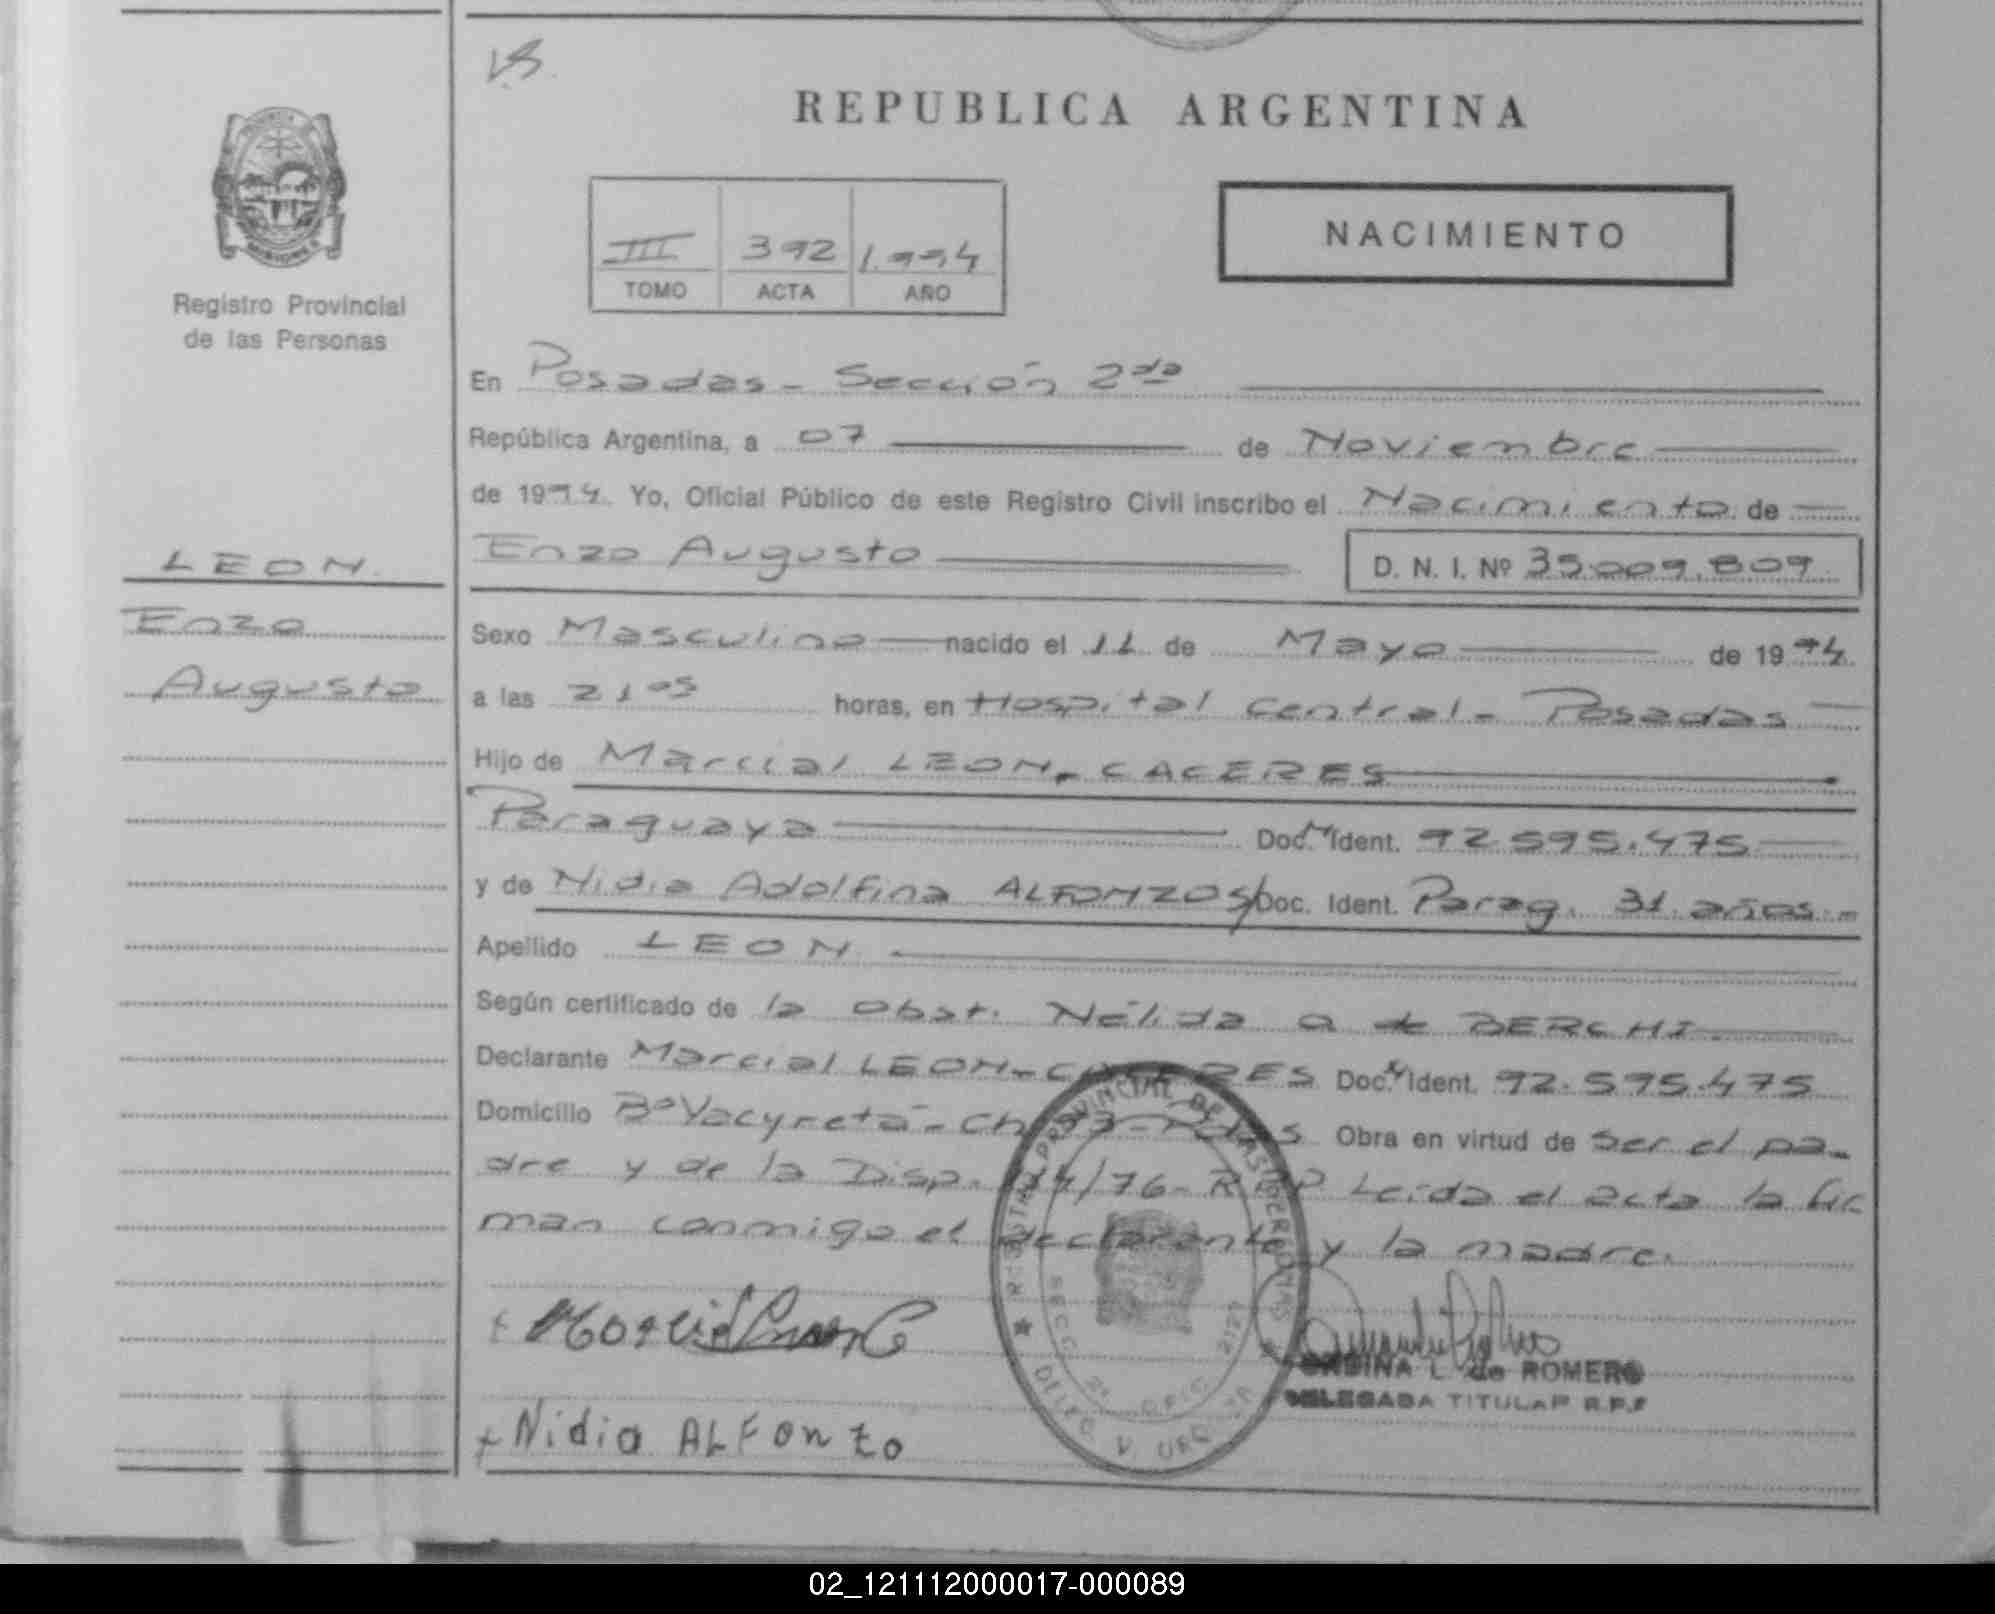 REPUBLICA ARGENTINA
NACIMIENTO
III 392 1.994
TOMO ACTA AÑO
Registro Provincial
de las Personas
En Posadas - Sección 2da
República Argentina, a 07 de Noviembre
de 1994. Yo, Oficial Público de este Registro Civil inscribo el Nacimiento de
Enzo Augusto D. N. I. Nº 35.009.809
LEON.
Enzo
Augusto
Sexo Masculino nacido el 11 de Mayo de 1994.
a las 21 05 horas, en Hospital Central - Posadas
Hijo de Marcial LEON - CACERES
Paraguaya Doc. Ident. 92.595.475
y de Nidia Adolfina ALFONZO S/Doc. Ident. Parag. 31 años.-
Apellido LEON
Según certificado de la Obst. Nélida Q de BERCHI
Declarante Marcial LEON - CACERES Doc. Ident. 92.595.475
Domicilio Bº Yacyretá - Obra en virtud de ser el pa-
dre y de la Disp. /76 - Leída el acta la fir
man conmigo el declarante y la madre.
Nidia ALFonzo
REGISTRO PROVINCIAL DE LAS
SECC. 2ª
L. de ROMERO
DELEGADA TITULAR R.P.P
02_121112000017-000089